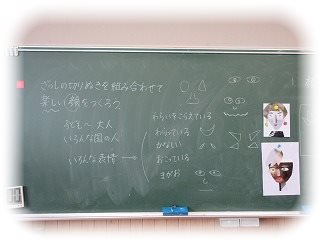 ざっしの切りぬきを組み合わせて
楽しい顔をつくろう
子ども〜大人
いろんな国の人
いろんな表情 →
わらいをこらえている
わらっている
かなしい
おこっている
まがお